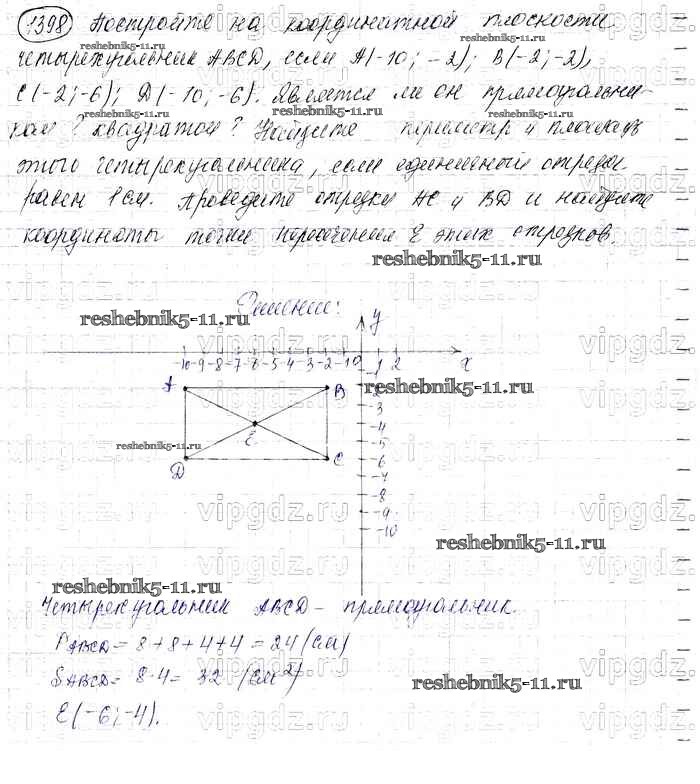 1398 Постройте на координатной плоскости
reshebnik5-11.ru
четырехугольник ABCD, если A(-10; -2); B(-2; -2),
C(-2; -6); D(-10; -6). Является ли он прямоугольни-
ком? квадратом? Найдите периметр и площадь
этого четырехугольника, если единичный отрезок
равен 1 см. Проведите отрезки AC и BD и найдите
координаты точки пересечения E этих отрезков.
reshebnik5-11.ru
Решение:
reshebnik5-11.ru
y
-10 -9 -8 -7 -6 -5 -4 -3 -2 -1 0 1 2 x
A B
reshebnik5-11.ru
-3
-4
reshebnik5-11.ru
E
-5
D C -6
-7
-8
-9
-10
vipgdz.ru
reshebnik5-11.ru
reshebnik5-11.ru
Четырехугольник ABCD - прямоугольник.
P ABCD = 8 + 8 + 4 + 4 = 24 (см)
S ABCD = 8 · 4 = 32 (см²)
reshebnik5-11.ru
E(-6; -4).
vipgdz.ru